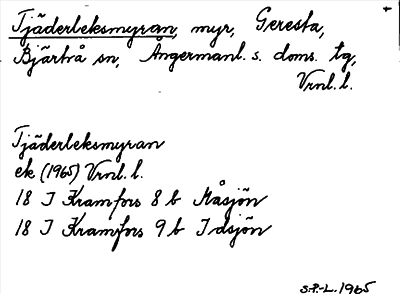 Tjäderleksmyran, myr, Geresta,
Bjärtrå sn, Ångermanl. s. doms. tg,
Vrnl. l.
Tjäderleksmyran
ek (1965) Vrnl. l.
18 I Kramfors 8 b Måsjön
18 I Kramfors 9 b Idsjön
S.P.-L. 1965